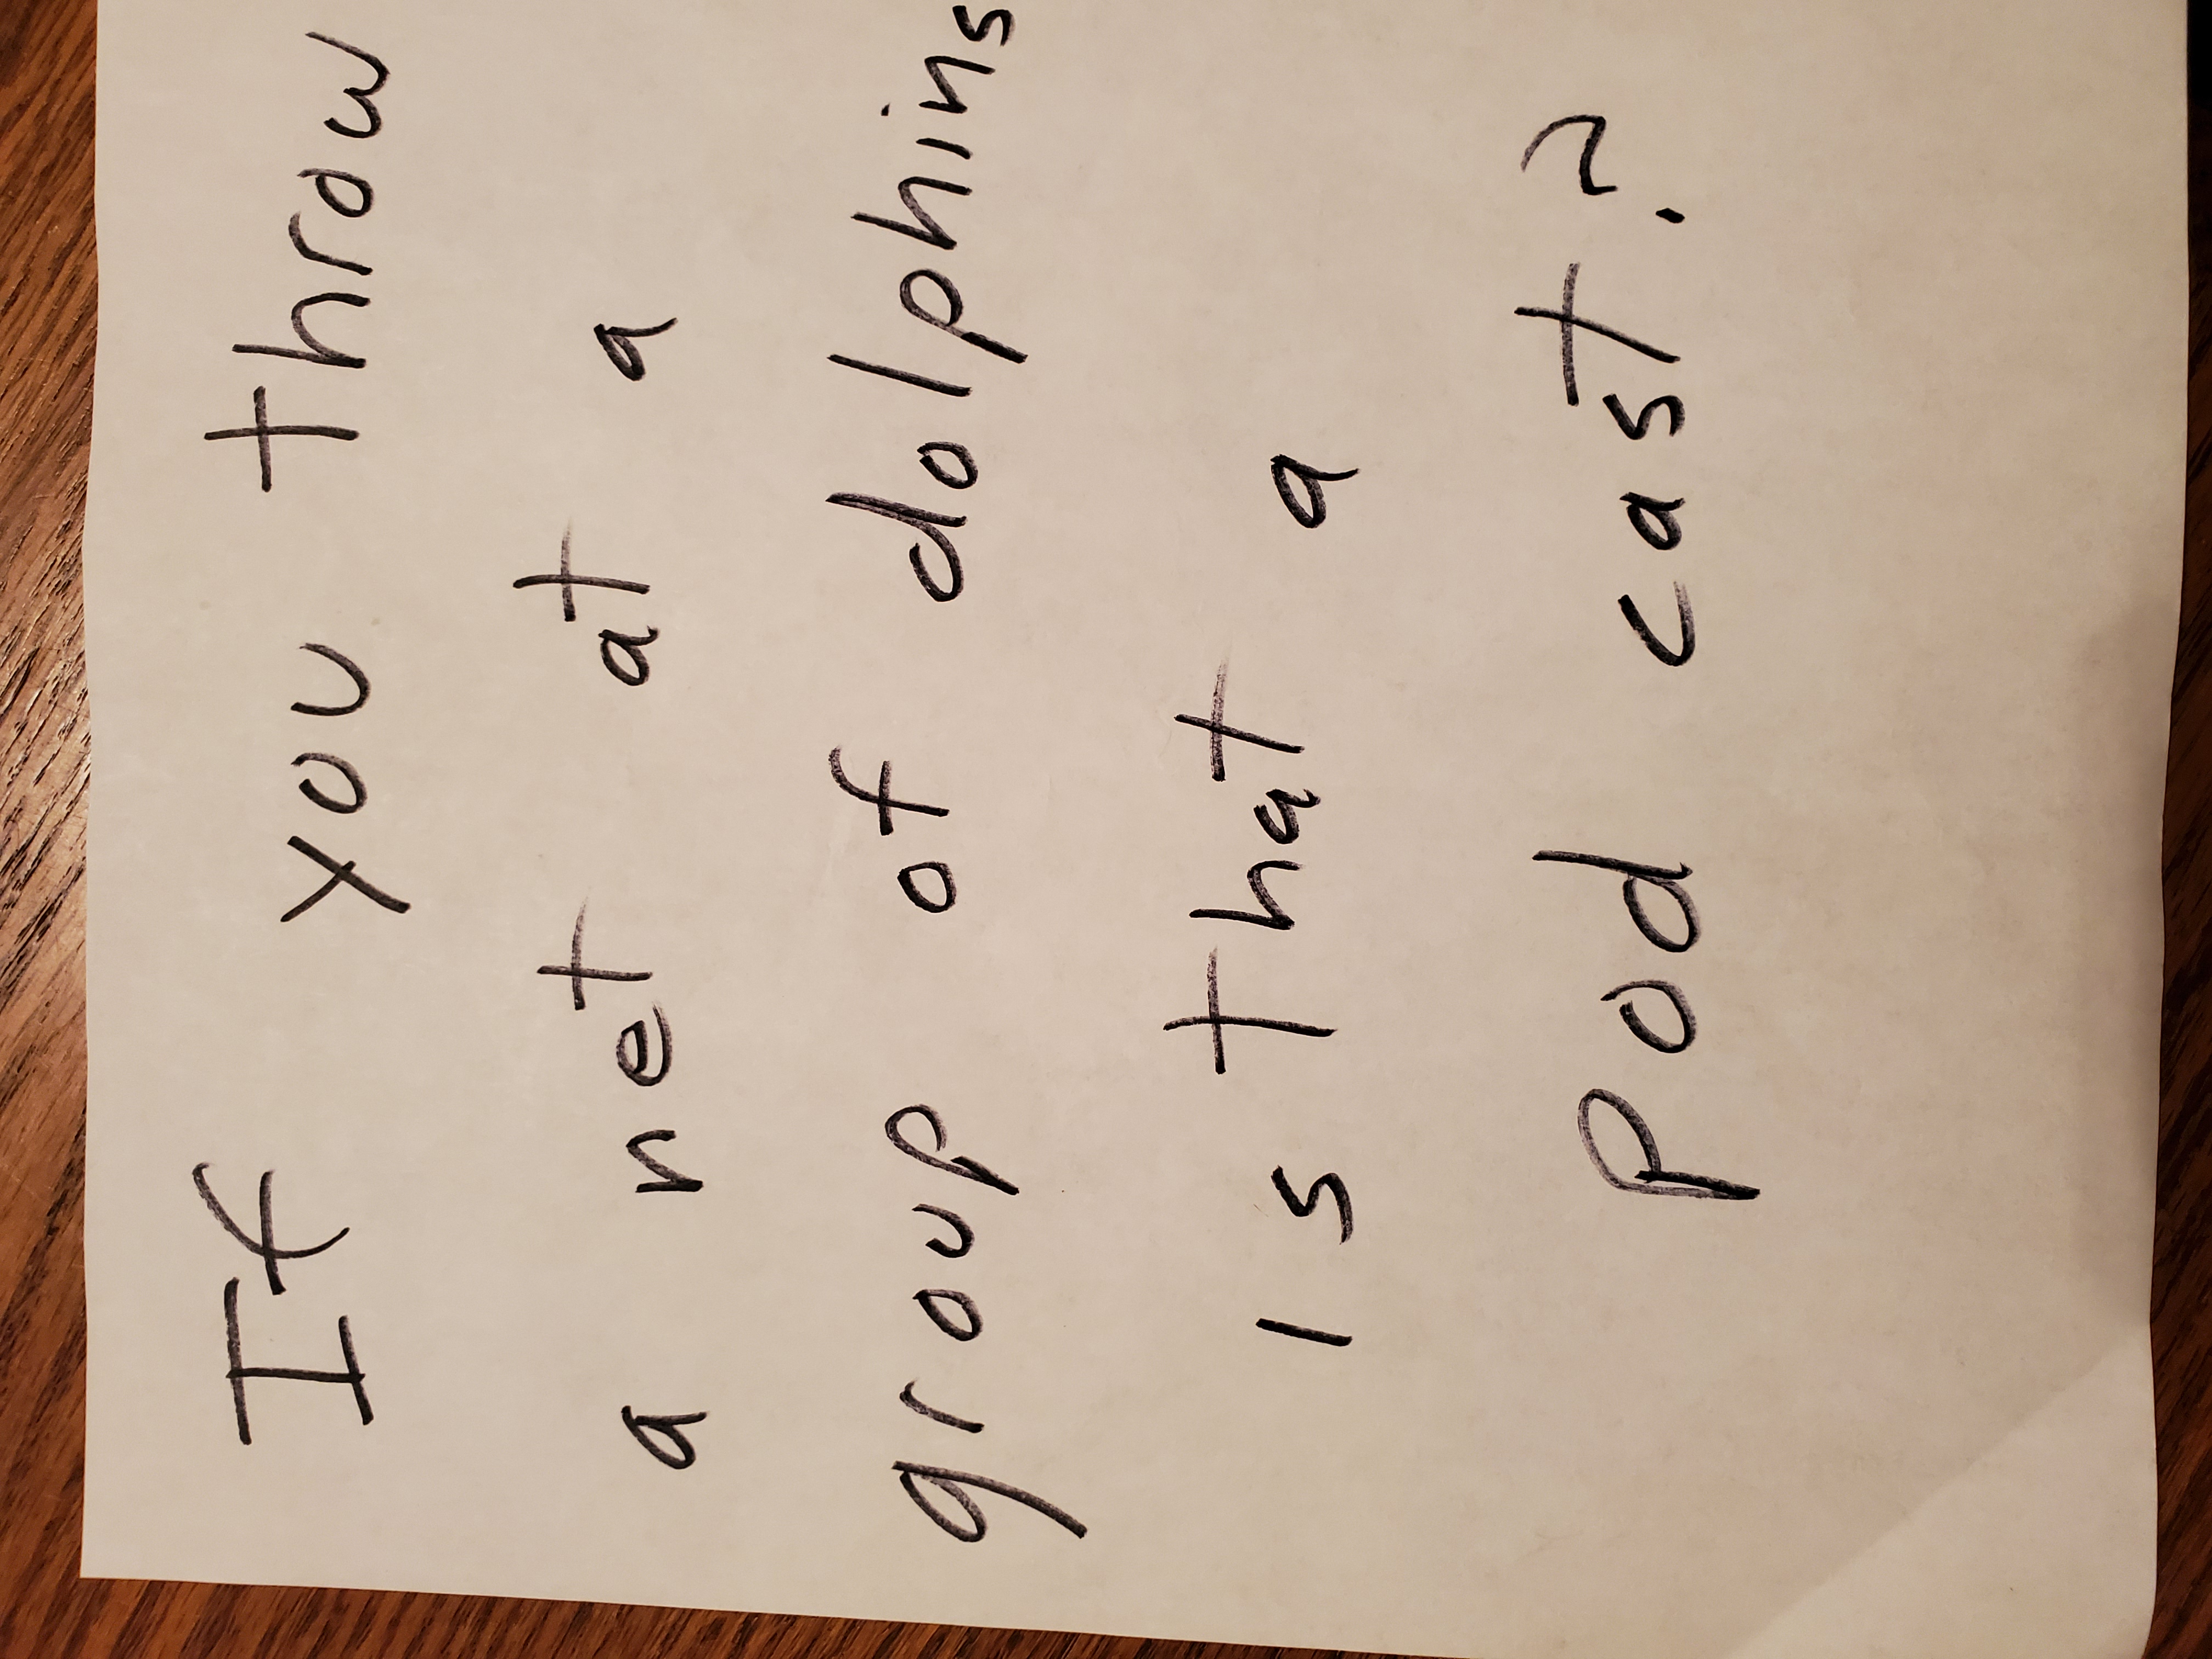 If you throw
a net at a
group of dolphins
is that a
pod cast?